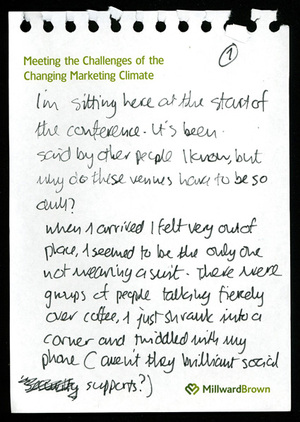 Meeting the Challenges of the
Changing Marketing Climate
1
I'm sitting here at the start of
the conference. It's been
said by other people I know, but
why do these venues have to be so
dull?
When I arrived I felt very out of
place, I seemed to be the only one
not wearing a suit. There were
groups of people talking fiercely
over coffee, I just shrank into a
corner and twiddled with my
phone (aren't they brilliant social
supports?)
MillwardBrown